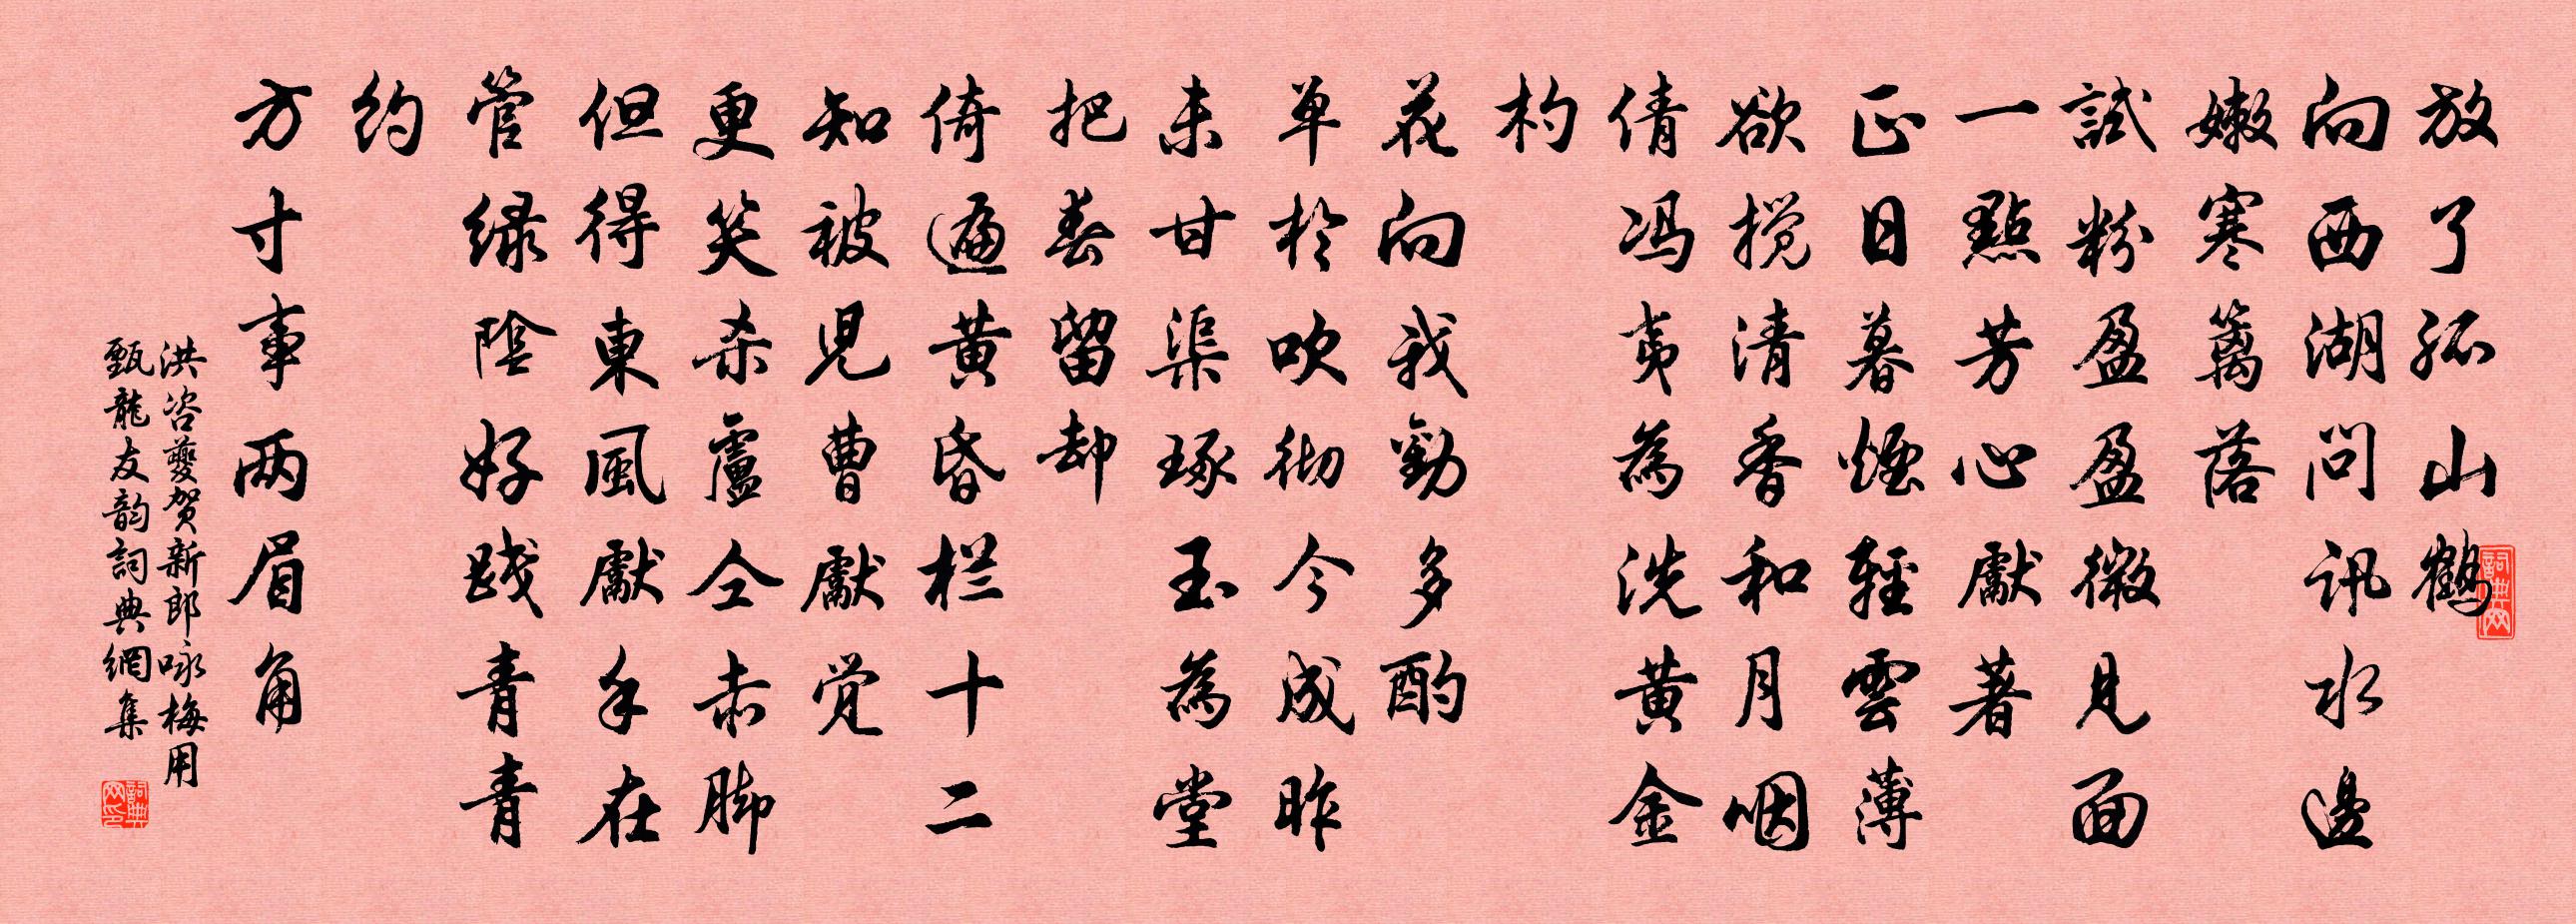 放了孤山鶴
向西湖問訊水邊
嫩寒籬落
試粉盈盈微見面
一點芳心獻著
正日暮煙輕雲薄
欲攪清香和月咽
倩冯夷為洗黄金
杓
花向我勸多酌
单於吹彻今成昨
未甘渠琢玉為堂
把春留却
倚遍黄昏栏十二
知被兒曹獻觉
更笑杀盧仝赤脚
但得東風獻手在
管绿陰好踐青青
约
方寸事两眉角
洪咨夔贺新郎咏梅用
甄龍友韵詞典網集
詞典网
詞典网印